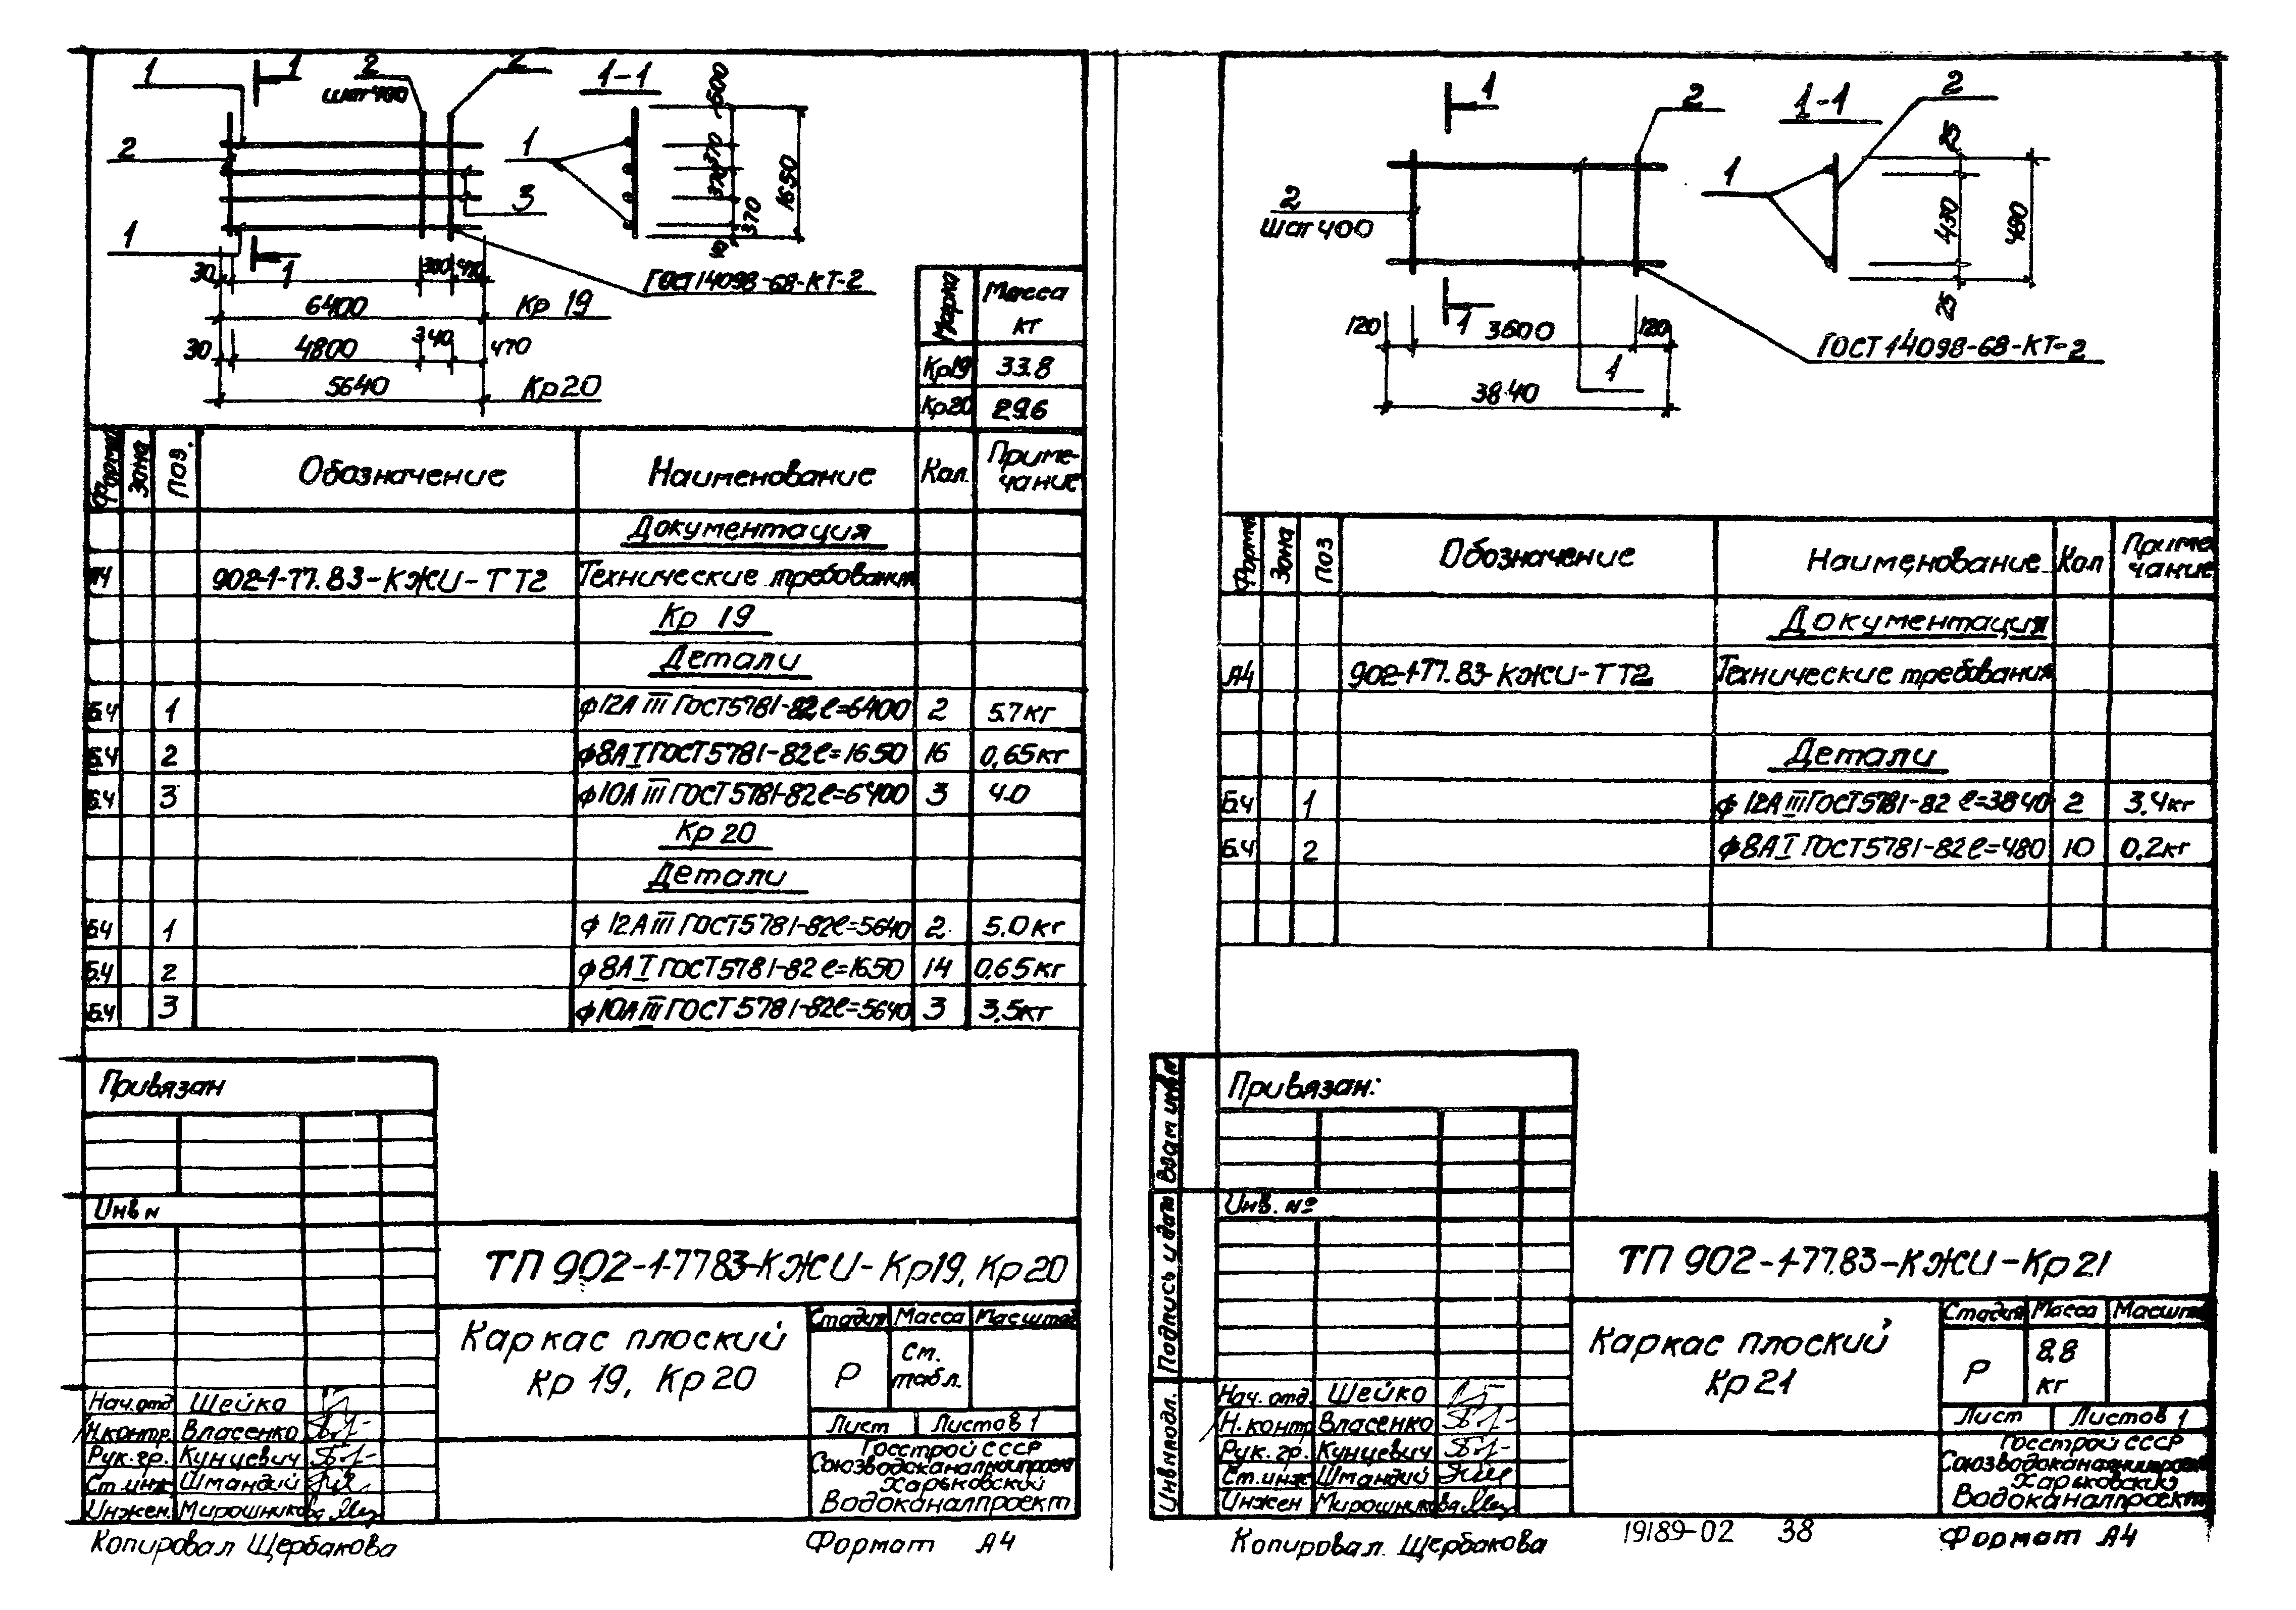 1
1
2
шаг 400
2
1-1
2
1
3
1
1
500
370
370
370
40
1650
30
300
470
ГОСТ 14098-68-КТ-2
6400
Кр 19
30
4800
340
470
5640
Кр 20
Марка
Масса кг
Кр19
33.8
Кр20
29.6
Формат
Зона
Поз.
Обозначение
Наименование
Кол.
Приме-
чание
Документация
А4
902-1-77.83-КЖИ-ТТ2
Технические требования
Кр 19
Детали
Б.Ч
1
ф12А III ГОСТ5781-82 ℓ=6400
2
5.7кг
Б.Ч
2
ф8А I ГОСТ5781-82 ℓ=1650
16
0,65кг
Б.Ч
3
ф10А III ГОСТ5781-82 ℓ=6400
3
4.0
Кр 20
Детали
Б.Ч
1
ф12А III ГОСТ5781-82 ℓ=5640
2
5.0кг
Б.Ч
2
ф8А I ГОСТ5781-82 ℓ=1650
14
0,65кг
Б.Ч
3
ф10А III ГОСТ5781-82 ℓ=5640
3
3,5кг
Привязан
Инв N
ТП 902-1-7783-КЖИ-Кр19, Кр20
Каркас плоский
Кр 19, Кр 20
Стадия
Масса
Масштаб
Р
См.
табл.
Лист
Листов 1
Госстрой СССР
Союзводоканалниипроект
Харьковский
Водоканалпроект
Нач.отд
Шейко
Н.контр.
Власенко
Рук.гр.
Кунцевич
Ст.инж.
Шмандий
Инжен.
Мирошникова
Копировал Щербакова
Формат А4
1
2
1-1
2
2
шаг 400
1
25
430
480
25
1
120
3600
120
ГОСТ 14098-68-КТ-2
1
3840
Формат
Зона
Поз
Обозначение
Наименование
Кол
Приме
чание
Документация
А4
902-1-77.83-КЖИ-ТТ2
Технические требования
Детали
Б.Ч
1
ф12А III ГОСТ5781-82 ℓ=3840
2
3,4кг
Б.Ч
2
ф8А I ГОСТ5781-82 ℓ=480
10
0,2кг
Взам инв.N
Подпись и дата
Инв.N подл.
Привязан:
Инв. №
ТП 902-1-77.83-КЖИ-Кр 21
Каркас плоский
Кр 21
Стадия
Масса
Масштаб
Р
8,8
кг
Лист
Листов 1
Госстрой СССР
Союзводоканалниипроект
Харьковский
Водоканалпроект
Нач.отд.
Шейко
Н.контр
Власенко
Рук.гр.
Кунцевич
Ст.инж
Шмандий
Инжен
Мирошникова
Копировал. Щербакова
19189-02 38
Формат А4